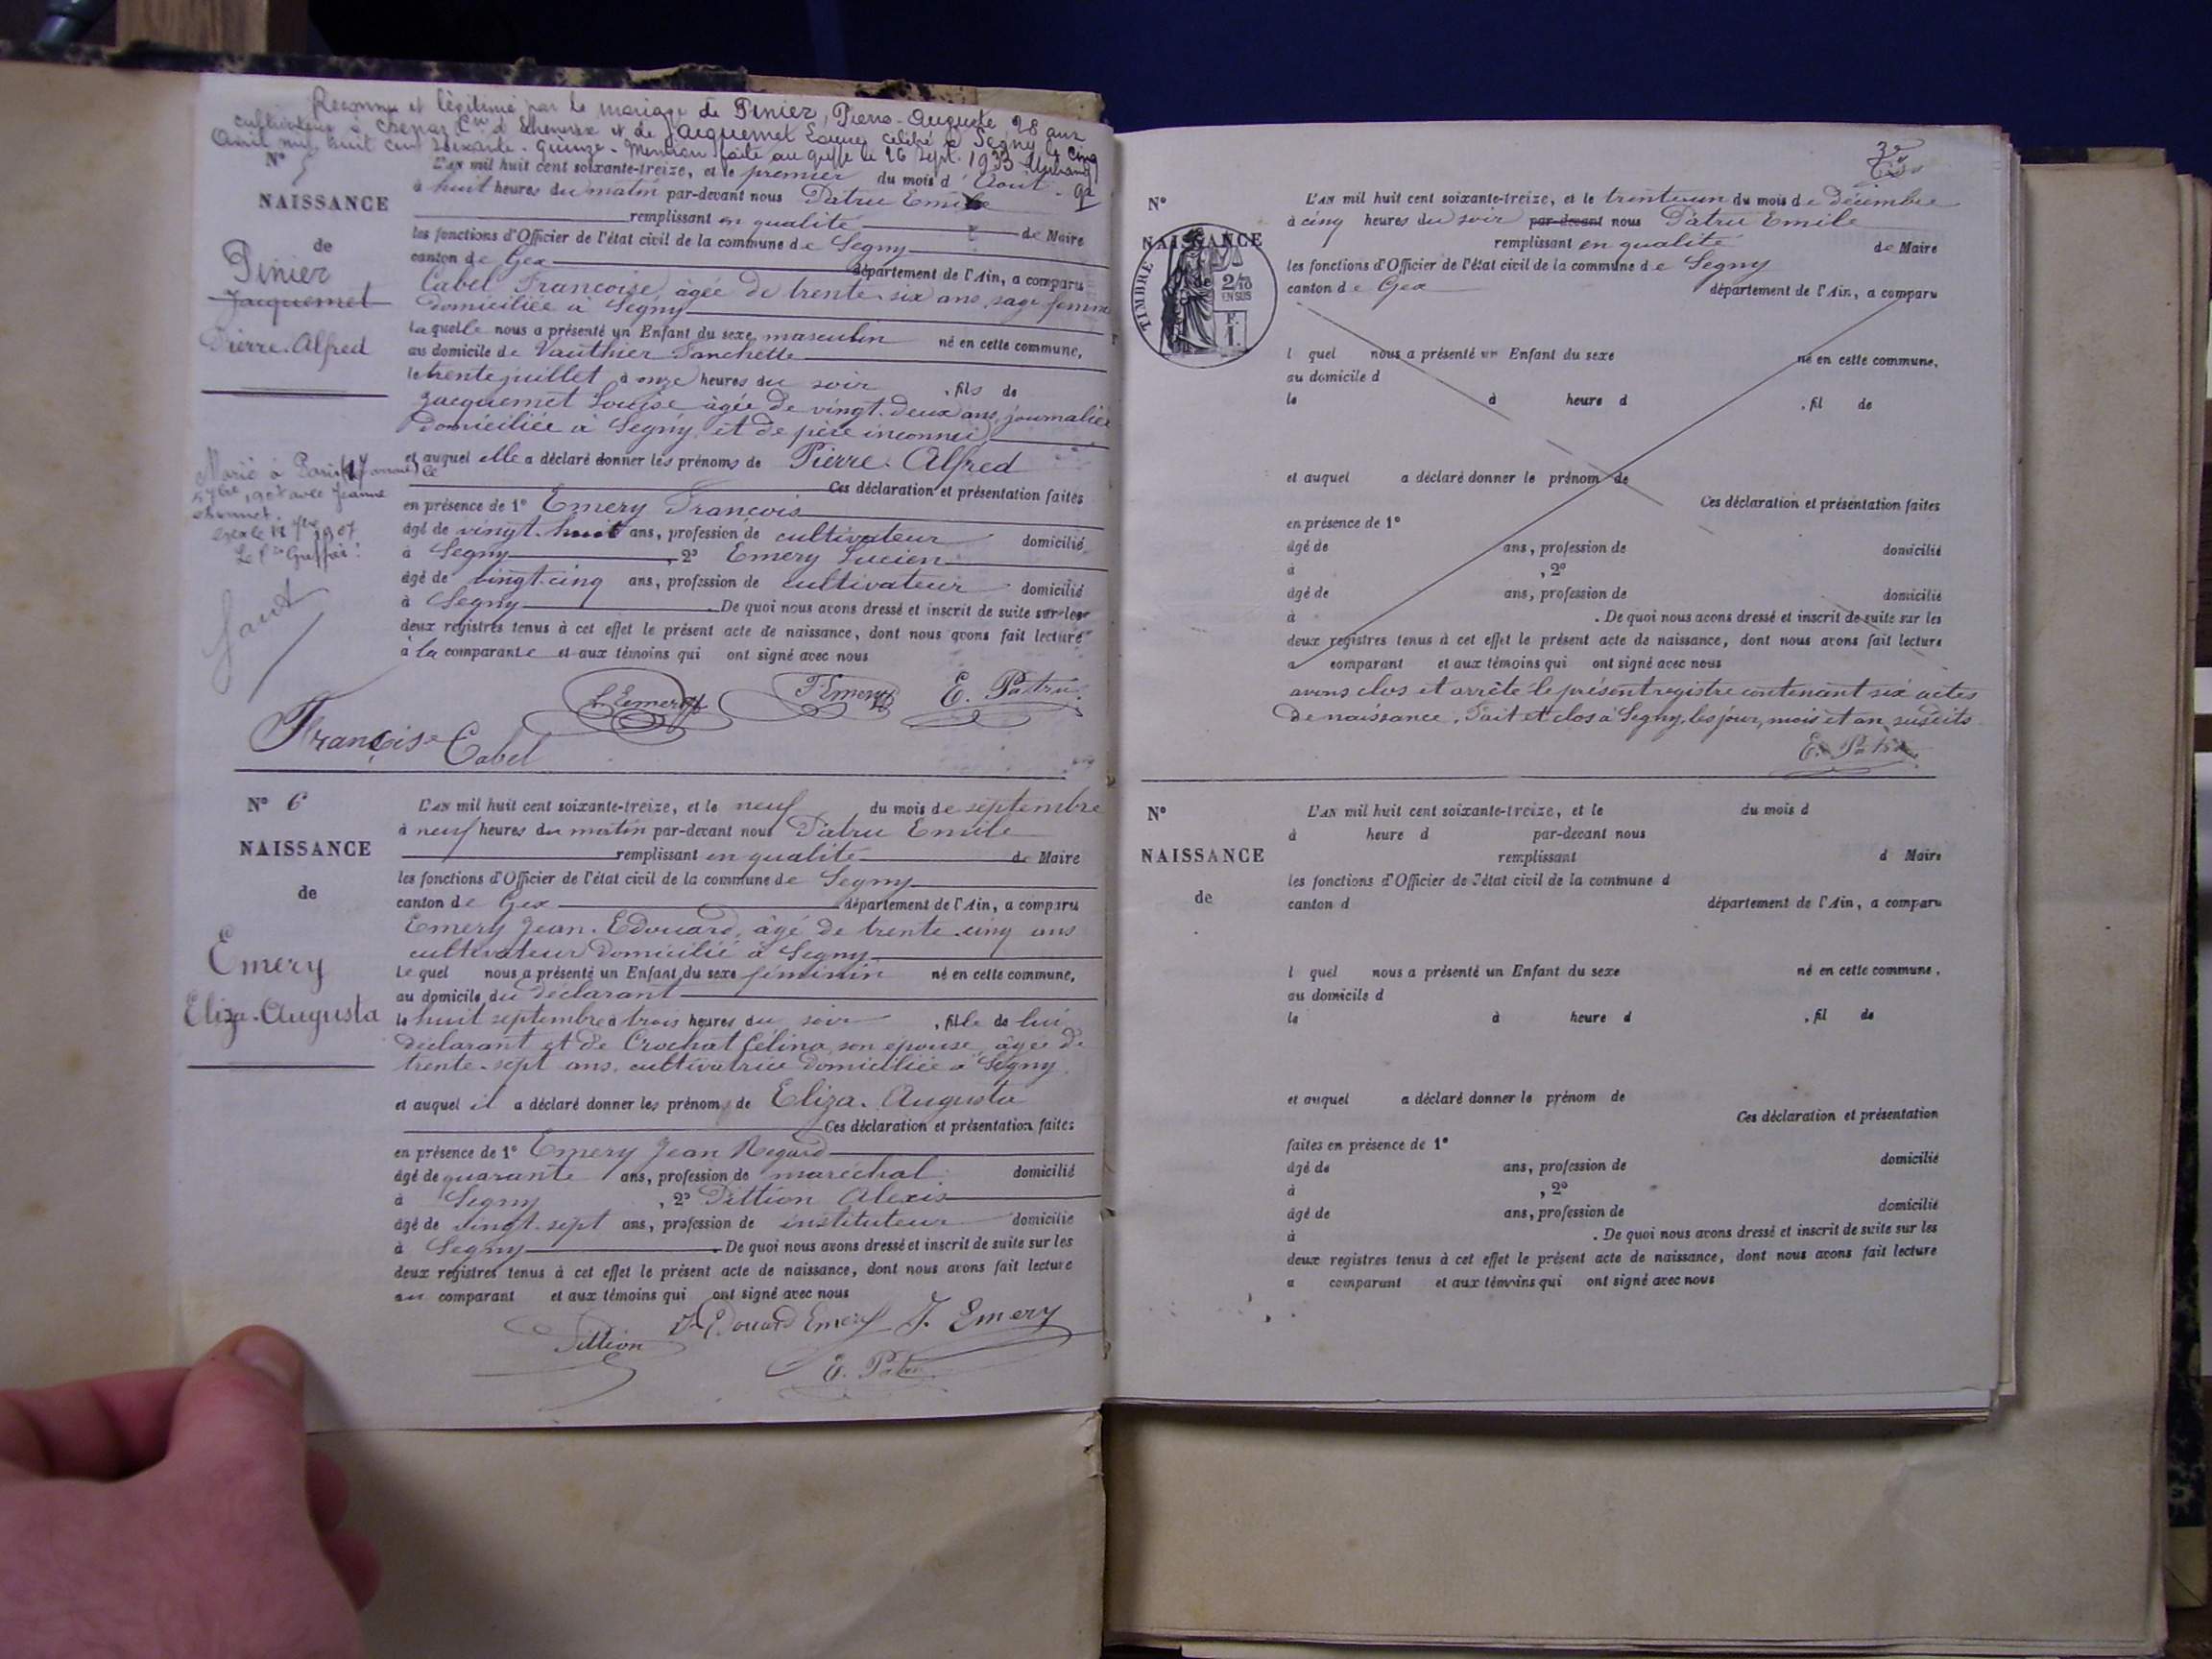 Reconnu et légitimé par le mariage de Pinier, Pierre-Auguste 28 ans
cultivateur à et de Jacquemet Louise célébré à Segny le cinq
Avril mil huit cent soixante-quinze. Mention faite au greffe le 26 Sept. 1933
N° 5
NAISSANCE
de
Pinier
Jacquemet
Pierre-Alfred
L'AN mil huit cent soixante-treize, et le premier du mois d'Août
à huit heures du matin par-devant nous Patru Emile
remplissant en qualité de Maire
les fonctions d'Officier de l'état civil de la commune de Segny
canton de Gex département de l'Ain, a comparu
Cabel Francoise, âgée de trente-six ans, sage femme
domiciliée à Segny
laquelle nous a présenté un Enfant du sexe masculin né en cette commune,
au domicile de Vauthier Fanchette
le trente juillet à onze heures du soir, fils de
Jacquemet Louise âgée de vingt-deux ans, journalière
domiciliée à Segny, et de père inconnu
et auquel elle a déclaré donner les prénoms de Pierre-Alfred
Ces déclaration et présentation faites
en présence de 1° Emery Francois
âgé de vingt-huit ans, profession de cultivateur domicilié
à Segny, 2° Emery Lucien
âgé de vingt-cinq ans, profession de cultivateur domicilié
à Segny. De quoi nous avons dressé et inscrit de suite sur les
deux registres tenus à cet effet le présent acte de naissance, dont nous avons fait lecture
à la comparante et aux témoins qui ont signé avec nous
Marié à Paris
avec Jeanne
L. Emery F. Emery E. Patru
Françoise Cabel
N° 6
NAISSANCE
de
Emery
Eliza-Augusta
L'AN mil huit cent soixante-treize, et le neuf du mois de septembre
à neuf heures du matin par-devant nous Patru Emile
remplissant en qualité de Maire
les fonctions d'Officier de l'état civil de la commune de Segny
canton de Gex département de l'Ain, a comparu
Emery Jean-Edouard, âgé de trente-cinq ans
cultivateur domicilié à Segny
lequel nous a présenté un Enfant du sexe féminin né en cette commune,
au domicile du déclarant
le huit septembre à trois heures du soir, fille de lui
déclarant et de Crochat Célina, son épouse, âgée de
trente-sept ans, cultivatrice domiciliée à Segny
et auquel il a déclaré donner les prénoms de Eliza-Augusta
Ces déclaration et présentation faites
en présence de 1° Emery Jean Regard
âgé de quarante ans, profession de maréchal domicilié
à Segny, 2° Pittion Alexis
âgé de vingt-sept ans, profession de instituteur domicilié
à Segny. De quoi nous avons dressé et inscrit de suite sur les
deux registres tenus à cet effet le présent acte de naissance, dont nous avons fait lecture
au comparant et aux témoins qui ont signé avec nous
Pittion J-Edouard Emery J. Emery
E. Patru
N°
NAISSANCE
de
TIMBRE
2/10
EN SUS
F.
1.
L'AN mil huit cent soixante-treize, et le trente-un du mois de décembre
à cinq heures du soir par-devant nous Patru Emile
remplissant en qualité de Maire
les fonctions d'Officier de l'état civil de la commune de Segny
canton de Gex département de l'Ain, a comparu
l quel nous a présenté un Enfant du sexe né en cette commune,
au domicile d
le à heure d , fil de
et auquel a déclaré donner le prénom de
Ces déclaration et présentation faites
en présence de 1°
âgé de ans, profession de domicilié
à , 2°
âgé de ans, profession de domicilié
à . De quoi nous avons dressé et inscrit de suite sur les
deux registres tenus à cet effet le présent acte de naissance, dont nous avons fait lecture
a comparant et aux témoins qui ont signé avec nous
avons clos et arrêté le présent registre contenant six actes
de naissance. Fait et clos à Segny, les jour, mois et an susdits
E. Patru
N°
NAISSANCE
de
L'AN mil huit cent soixante-treize, et le du mois d
à heure d par-devant nous
remplissant d Maire
les fonctions d'Officier de l'état civil de la commune d
canton d département de l'Ain, a comparu
l quel nous a présenté un Enfant du sexe né en cette commune,
au domicile d
le à heure d , fil de
et auquel a déclaré donner le prénom de
Ces déclaration et présentation
faites en présence de 1°
âgé de ans, profession de domicilié
à , 2°
âgé de ans, profession de domicilié
à . De quoi nous avons dressé et inscrit de suite sur les
deux registres tenus à cet effet le présent acte de naissance, dont nous avons fait lecture
a comparant et aux témoins qui ont signé avec nous